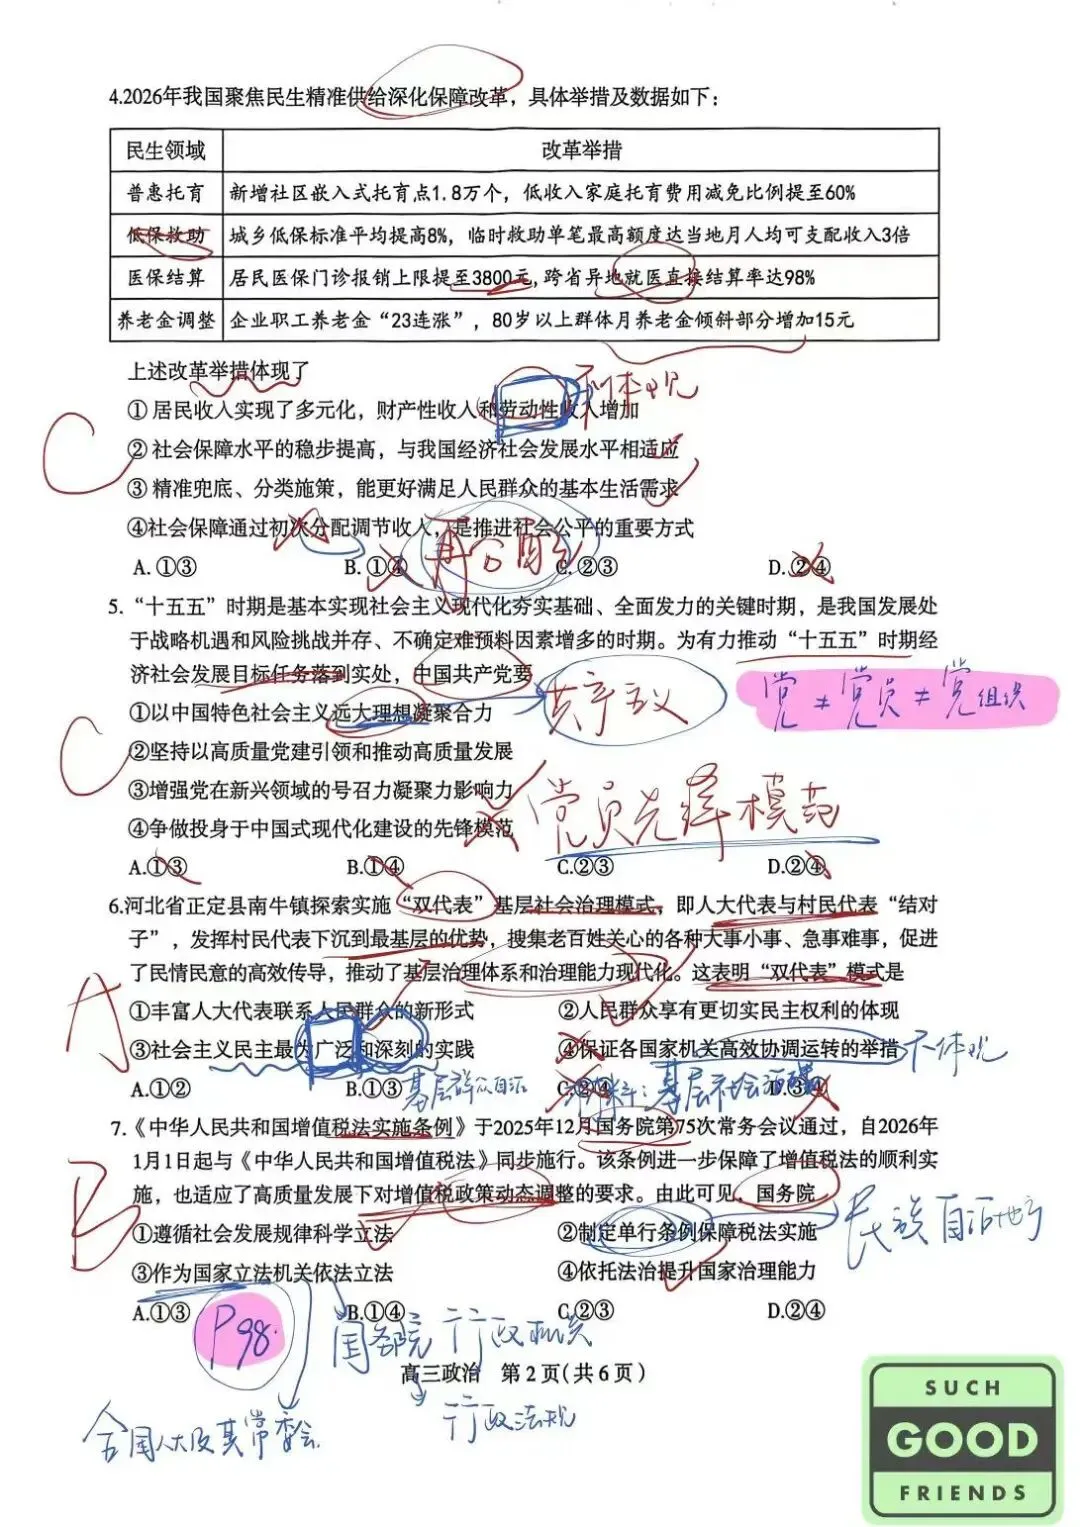 4.2026年我国聚焦民生精准供给深化保障改革，具体举措及数据如下：
民生领域 改革举措
普惠托育 新增社区嵌入式托育点1.8万个，低收入家庭托育费用减免比例提至60%
低保救助 城乡低保标准平均提高8%，临时救助单笔最高额度达当地月人均可支配收入3倍
医保结算 居民医保门诊报销上限提至3800元,跨省异地就医直接结算率达98%
养老金调整 企业职工养老金“23连涨”，80岁以上群体月养老金倾斜部分增加15元
上述改革举措体现了
不体现
①居民收入实现了多元化，财产性收入和劳动性收入增加
②社会保障水平的稳步提高，与我国经济社会发展水平相适应
C
③精准兜底、分类施策，能更好满足人民群众的基本生活需求
④社会保障通过初次分配调节收入，是推进社会公平的重要方式
再分配
A.①③ B.①④ C.②③ D.②④
5.“十五五”时期是基本实现社会主义现代化夯实基础、全面发力的关键时期，是我国发展处
于战略机遇和风险挑战并存、不确定难预料因素增多的时期。为有力推动“十五五”时期经
济社会发展目标任务落到实处，中国共产党要
党≠党员≠党组织
①以中国特色社会主义远大理想凝聚合力
共产主义
②坚持以高质量党建引领和推动高质量发展
C
③增强党在新兴领域的号召力凝聚力影响力
④争做投身于中国式现代化建设的先锋模范
党员先锋模范
A.①③ B.①④ C.②③ D.②④
6.河北省正定县南牛镇探索实施“双代表”基层社会治理模式，即人大代表与村民代表“结对
子”，发挥村民代表下沉到最基层的优势，搜集老百姓关心的各种大事小事、急事难事，促进
了民情民意的高效传导，推动了基层治理体系和治理能力现代化。这表明“双代表”模式是
A
①丰富人大代表联系人民群众的新形式 ②人民群众享有更切实民主权利的体现
③社会主义民主最为广泛和深刻的实践 ④保证各国家机关高效协调运转的举措
不体现
A.①② B.①③ C.②④ D.③④
基层群众自治
材料：基层社会治理
7.《中华人民共和国增值税法实施条例》于2025年12月国务院第75次常务会议通过，自2026年
1月1日起与《中华人民共和国增值税法》同步施行。该条例进一步保障了增值税法的顺利实
施，也适应了高质量发展下对增值税政策动态调整的要求。由此可见，国务院
B
①遵循社会发展规律科学立法 ②制定单行条例保障税法实施
民族自治地方
③作为国家立法机关依法立法 ④依托法治提升国家治理能力
A.①③ B.①④ C.②③ D.②④
P98.
国务院 行政机关
高三政治 第2页(共6页)
行政法规
全国人大及其常委会
SUCH
GOOD
FRIENDS